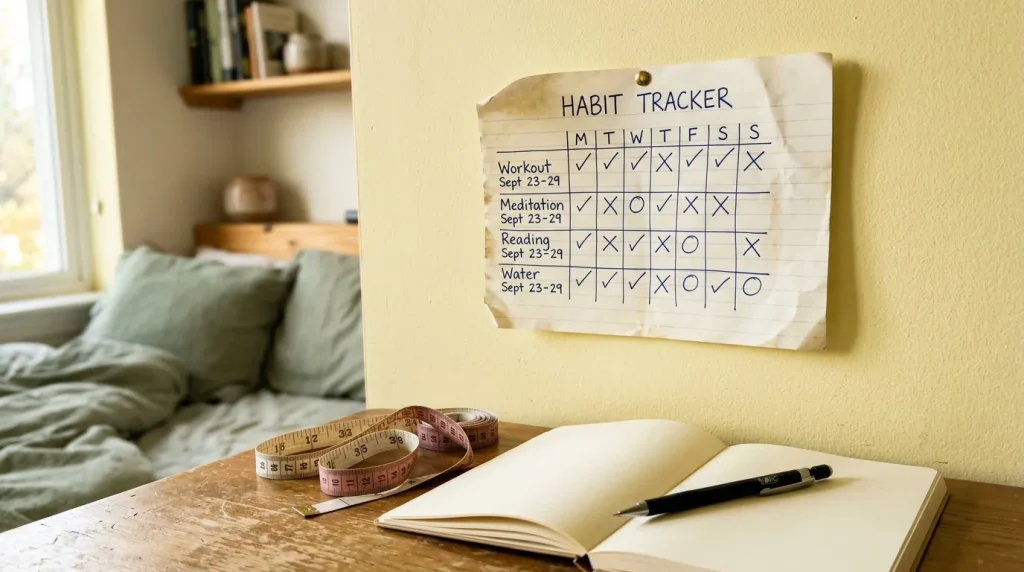 HABIT TRACKER
M T W T F S S
Workout ✓ ✓ ✓ X ✓ ✓ X
Sept 23-29
Meditation ✓ X O ✓ X X
Sept 23-29
Reading ✓ X ✓ X O X
Sept 23-29
Water ✓ ✓ ✓ X O ✓ O
Sept 23-29